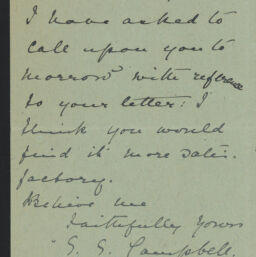 I have asked to
call upon you to
morrow with reference
to your letter: I
think you would
find it more satis-
factory.
Believe me
Faithfully Yours
G. G. Campbell.